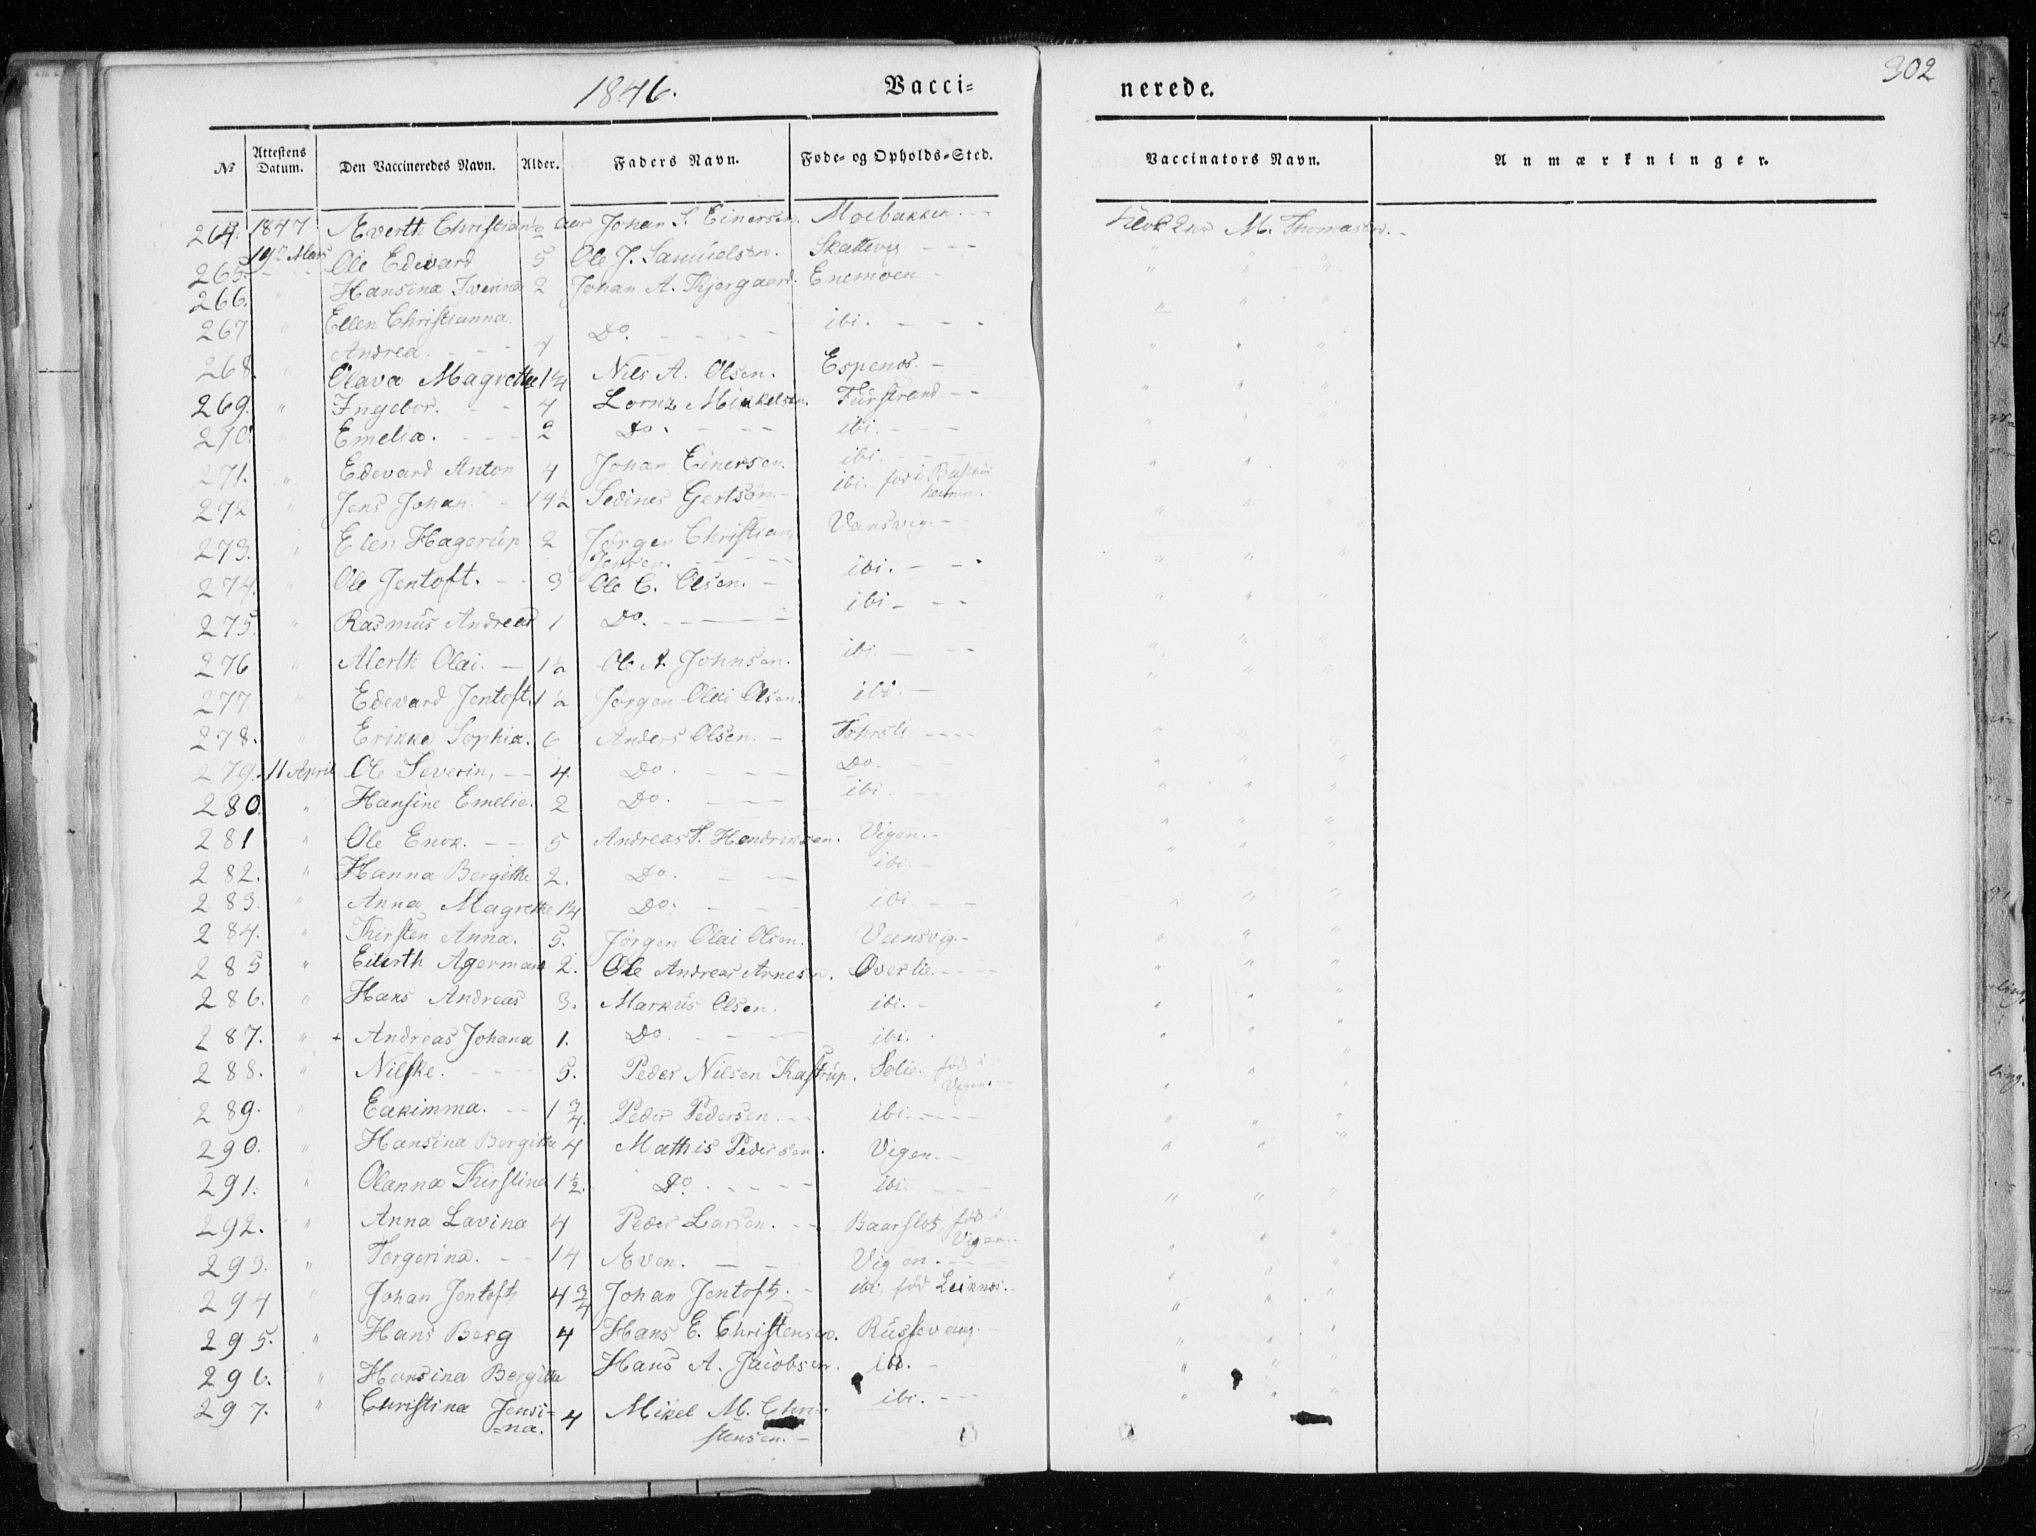 1846. Vacci= nerede. 302
No Attestens Datum. Den Vaccineredes Navn. Alder. Faders Navn. Føde- og Opholds-Sted. Vaccinators Navn. Anmærkninger.
264. 1847 Everth Christian ½ aar Johan S. Einersen. Moebakken. M. Thomasen.
19de Mars
265. Ole Edevard 5 Ole J. Samuelsen. Skattevig
266. " Hansina Iverina 2 Johan A. Kjergaard. Enemoen
267 " Ellen Christianna Do. ibi.
Andrea. 4
268. " Olava Magrethe 1¼ Nils A. Olsen. Espenes.
269. " Ingebor. 4 Lornz Mikkelsen. Furstrand
270. " Emelia. 2 Do. ibi.
271. " Edevard Anton 4 Johan Einersen. ibi.
272 " Jens Johan. 14½ Sedines Gertsøn. ibi. fød i
273. " Elen Hagerup 2 Jørgen Christian Jensen. Vansvig.
274. " Ole Jentoft. 3 Ole C. Olsen. ibi.
275. " Rasmus Andreas 1 Do. ibi
276 " Alerth Olai. 1½ Ole A. Johnsen. ibi.
277. " Edevard Jentoft. 1½ Jørgen Olai Olsen. ibi.
278. " Erikke Sophia. 6 Anders Olsen. Fohrsli
279. 11 April Ole Severin, 4. Do. Do.
280. " Hansine Emelie. 2 Do. ibi.
281 " Ole Enok. 5 Andreas P. Hendriksen. Vigen.
282. " Hanna Bergithe 2. Do. ibi.
283. " Anna Magrethe 1¼ Do. ibi
284. " Kirsten Anna. 5. Jørgen Olai Olsen. Vansvig.
285 " Eilerth Agerman 2. Ole Andreas Arnesen. Overlie.
286. " Hans Andreas 3. Markus Olsen. ibi.
287. " + Andreas Johana 1. Do. ibi.
288. " Nilske. 5. Peder Nilsen Kastrup. Solie. fød i Vigen.
289. " Eakimma. 1¾. Peder Pedersen. ibi.
290. " Hansina Bergithe 4 Mathis Pedersen. Vigen.
291. " Olanna Kirstina 1½. Do. ibi
292. " Anna Lavina 4 Peder Larsen. Baarslot, fød i Vigen.
293. " Torgerina. 14 Even. Vigen.
294 " Johan Jentoft 4¾ Johan Jentoft. ibi, fød Leiknes.
295. " Hans Berg 4 Hans E. Christensen. Russevang.
296. " Hansina Bergithe Hans A. Jacobsen. ibi.
297. " Christina Jensi= 4 Mikel M. Chri- ibi.
=na. stensen.